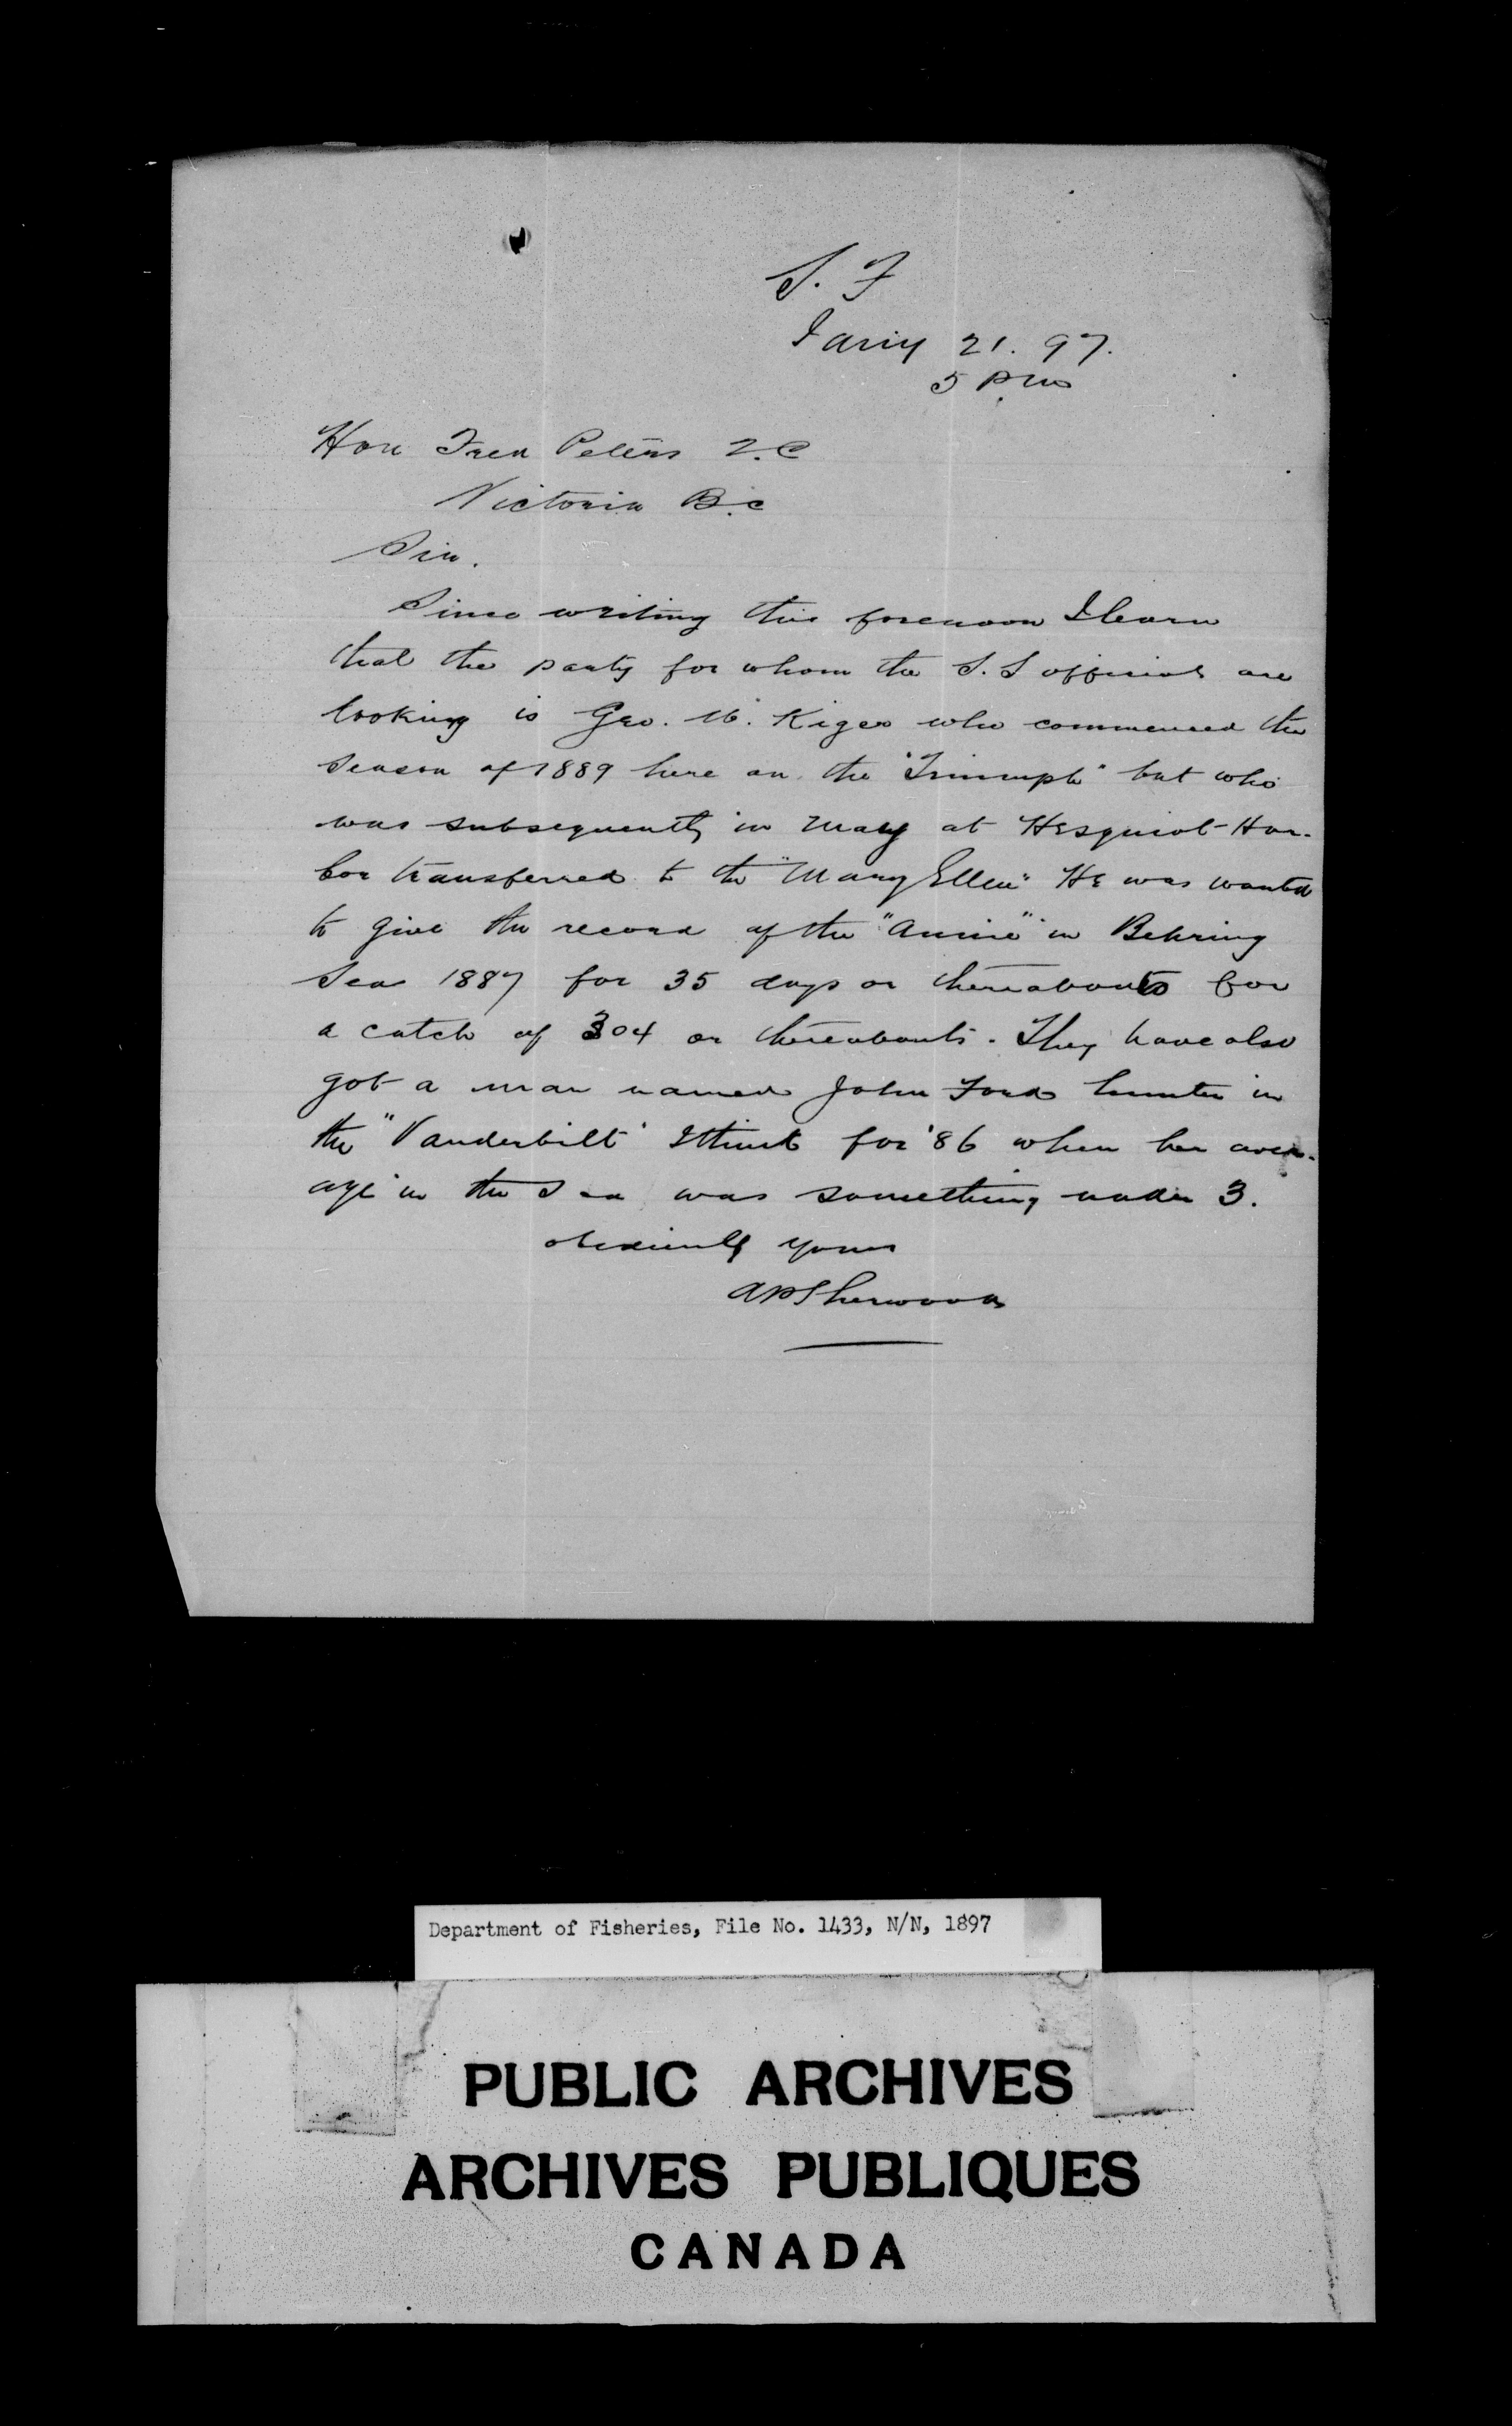 S. F
Jany 21. 97.
5 P.m
Hon Fred Peters Q.C
Victoria B.C
Sir.
Since writing this forenoon I learn
that the party for whom the S.S officials are
looking is Geo. W. Kiger who commenced the
season of 1889 here on the "Triumph" but who
was subsequently in May at Hesquiot Har-
bor transferred to the "Mary Ellen" He was wanted
to give the record of the "Annie" in Behring
Sea 1887 for 35 days or thereabouts for
a catch of 304 or thereabouts. They have also
got a man named John Ford hunter in
the "Vanderbilt" I think for '86 when her aver-
age in the Sea was something under 3.
obediently yours
APSherwood
Department of Fisheries, File No. 1433, N/N, 1897
PUBLIC ARCHIVES
ARCHIVES PUBLIQUES
CANADA